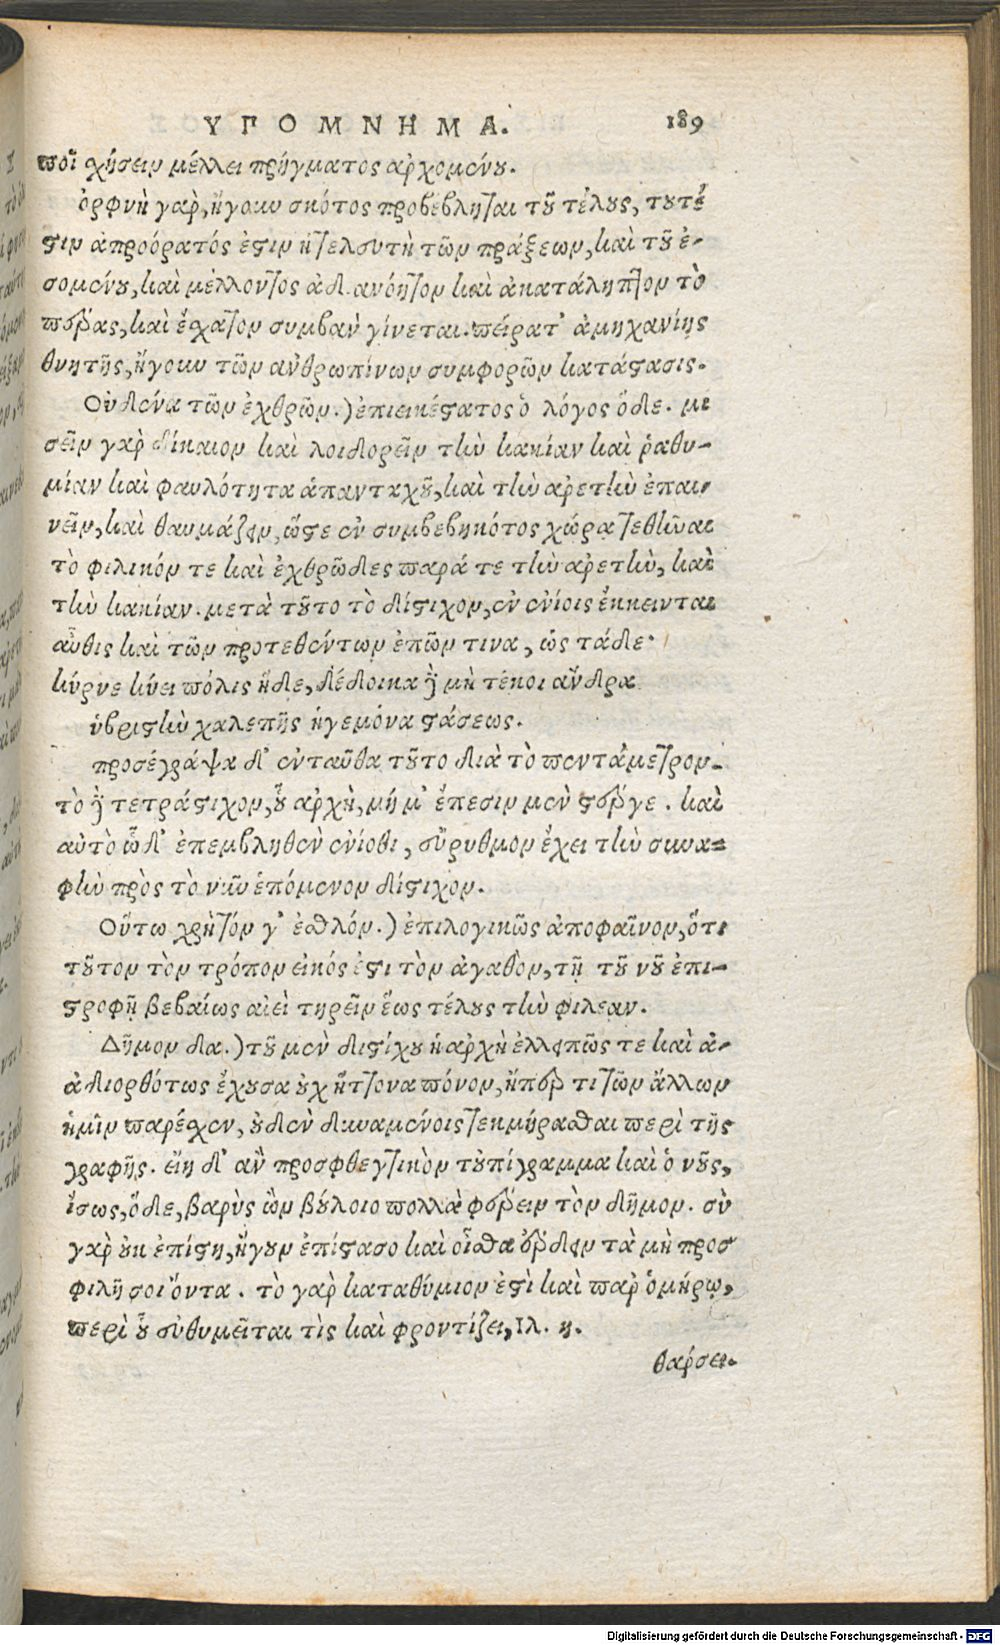 ΥΠΟΜΝΗΜΑ. 189
ποῖ χήσειν μέλλει πρήγματος ἀρχομένου.
ὀρφνὴ γὰρ, ἤγουν σκότος προβέβληται τοῦ τέλους, τουτέ
στιν ἀπροόρατός ἐστιν ἡ τελευτὴ τῶν πράξεων, καὶ τοῦ ἐ-
σομένου, καὶ μέλλοντος ἀδιανόητον καὶ ἀκατάληπτον τὸ
πέρας, καὶ ἔσχατον συμβὰν γίνεται. πείρατ' ἀμηχανίης
θνητῆς, ἤγουν τῶν ἀνθρωπίνων συμφορῶν κατάστασις.
Οὐδένα τῶν ἐχθρῶν.) ἐπιεικέστατος ὁ λόγος ὅδε. μι
σεῖν γὰρ δίκαιον καὶ λοιδορεῖν τὴν κακίαν καὶ ῥαθυ-
μίαν καὶ φαυλότητα ἁπανταχοῦ, καὶ τὴν ἀρετὴν ἐπαι-
νεῖν, καὶ θαυμάζειν, ὥστε ἐν συμβεβηκότος χώρᾳ τεθῆναι
τὸ φιλικόν τε καὶ ἐχθρῶδες παρά τε τὴν ἀρετὴν, καὶ
τὴν κακίαν. μετὰ τοῦτο τὸ δίστιχον, ἐν ἐνίοις ἔκκεινται
αὖθις καὶ τῶν προτεθέντων ἐπῶν τινα, ὡς τάδε·
κύρνε κύει πόλις ἥδε, δέδοικα δὲ μὴ τέκοι ἄνδρα
ὑβριστὴν χαλεπῆς ἡγεμόνα στάσεως.
προσέγραψα δ' ἐνταῦθα τοῦτο διὰ τὸ πεντάμετρον.
τὸ δὲ τετράστιχον, οὗ ἀρχὴ, μή μ' ἔπεσιν μὲν στέργε. καὶ
αὐτὸ ὧδ' ἐπεμβληθὲν ἐνίοθι, εὔρυθμον ἔχει τὴν συνα=
φὴν πρὸς τὸ νῦν ἑπόμενον δίστιχον.
Οὕτω χρὴ τόν γ' ἐσθλόν.) ἐπιλογικῶς ἀποφαῖνον, ὅτι
τοῦτον τὸν τρόπον εἰκός ἐστι τὸν ἀγαθὸν, τῇ τοῦ νοῦ ἐπι-
στροφῇ βεβαίως αἰεὶ τηρεῖν ἕως τέλους τὴν φιλεαν.
Δῆμον δα.) τοῦ μὲν διστίχου ἡ ἀρχὴ ἐλλειπῶς τε καὶ ἀ-
ἀδιορθότως ἔχουσα οὐχ ἥττονα πόνον, ἤπερ τι τῶν ἄλλων
ἡμῖν παρέσχεν, οὐδὲν δυναμένοις τεκμήρασθαι περὶ τῆς
γραφῆς. εἴη δ' ἂν προσφθεγτικὸν τοὐπίγραμμα καὶ ὁ νοῦς,
ἴσως, ὅδε, βαρὺς ὢν βούλοιο πολλὰ φέρειν τὸν δῆμον. σὺ
γὰρ οὐκ ἐπίστῃ, ἤγουν ἐπίστασο καὶ οἶσθα ἔρδειν τὰ μὴ προσ
φιλῆ σοι ὄντα. τὸ γὰρ καταθύμιον ἐστὶ καὶ παρ' ὁμήρῳ,
περὶ οὗ εὐθυμεῖται τὶς καὶ φροντίζει, Ιλ. κ.
θάρσει.
Digitalisierung gefördert durch die Deutsche Forschungsgemeinschaft - DFG